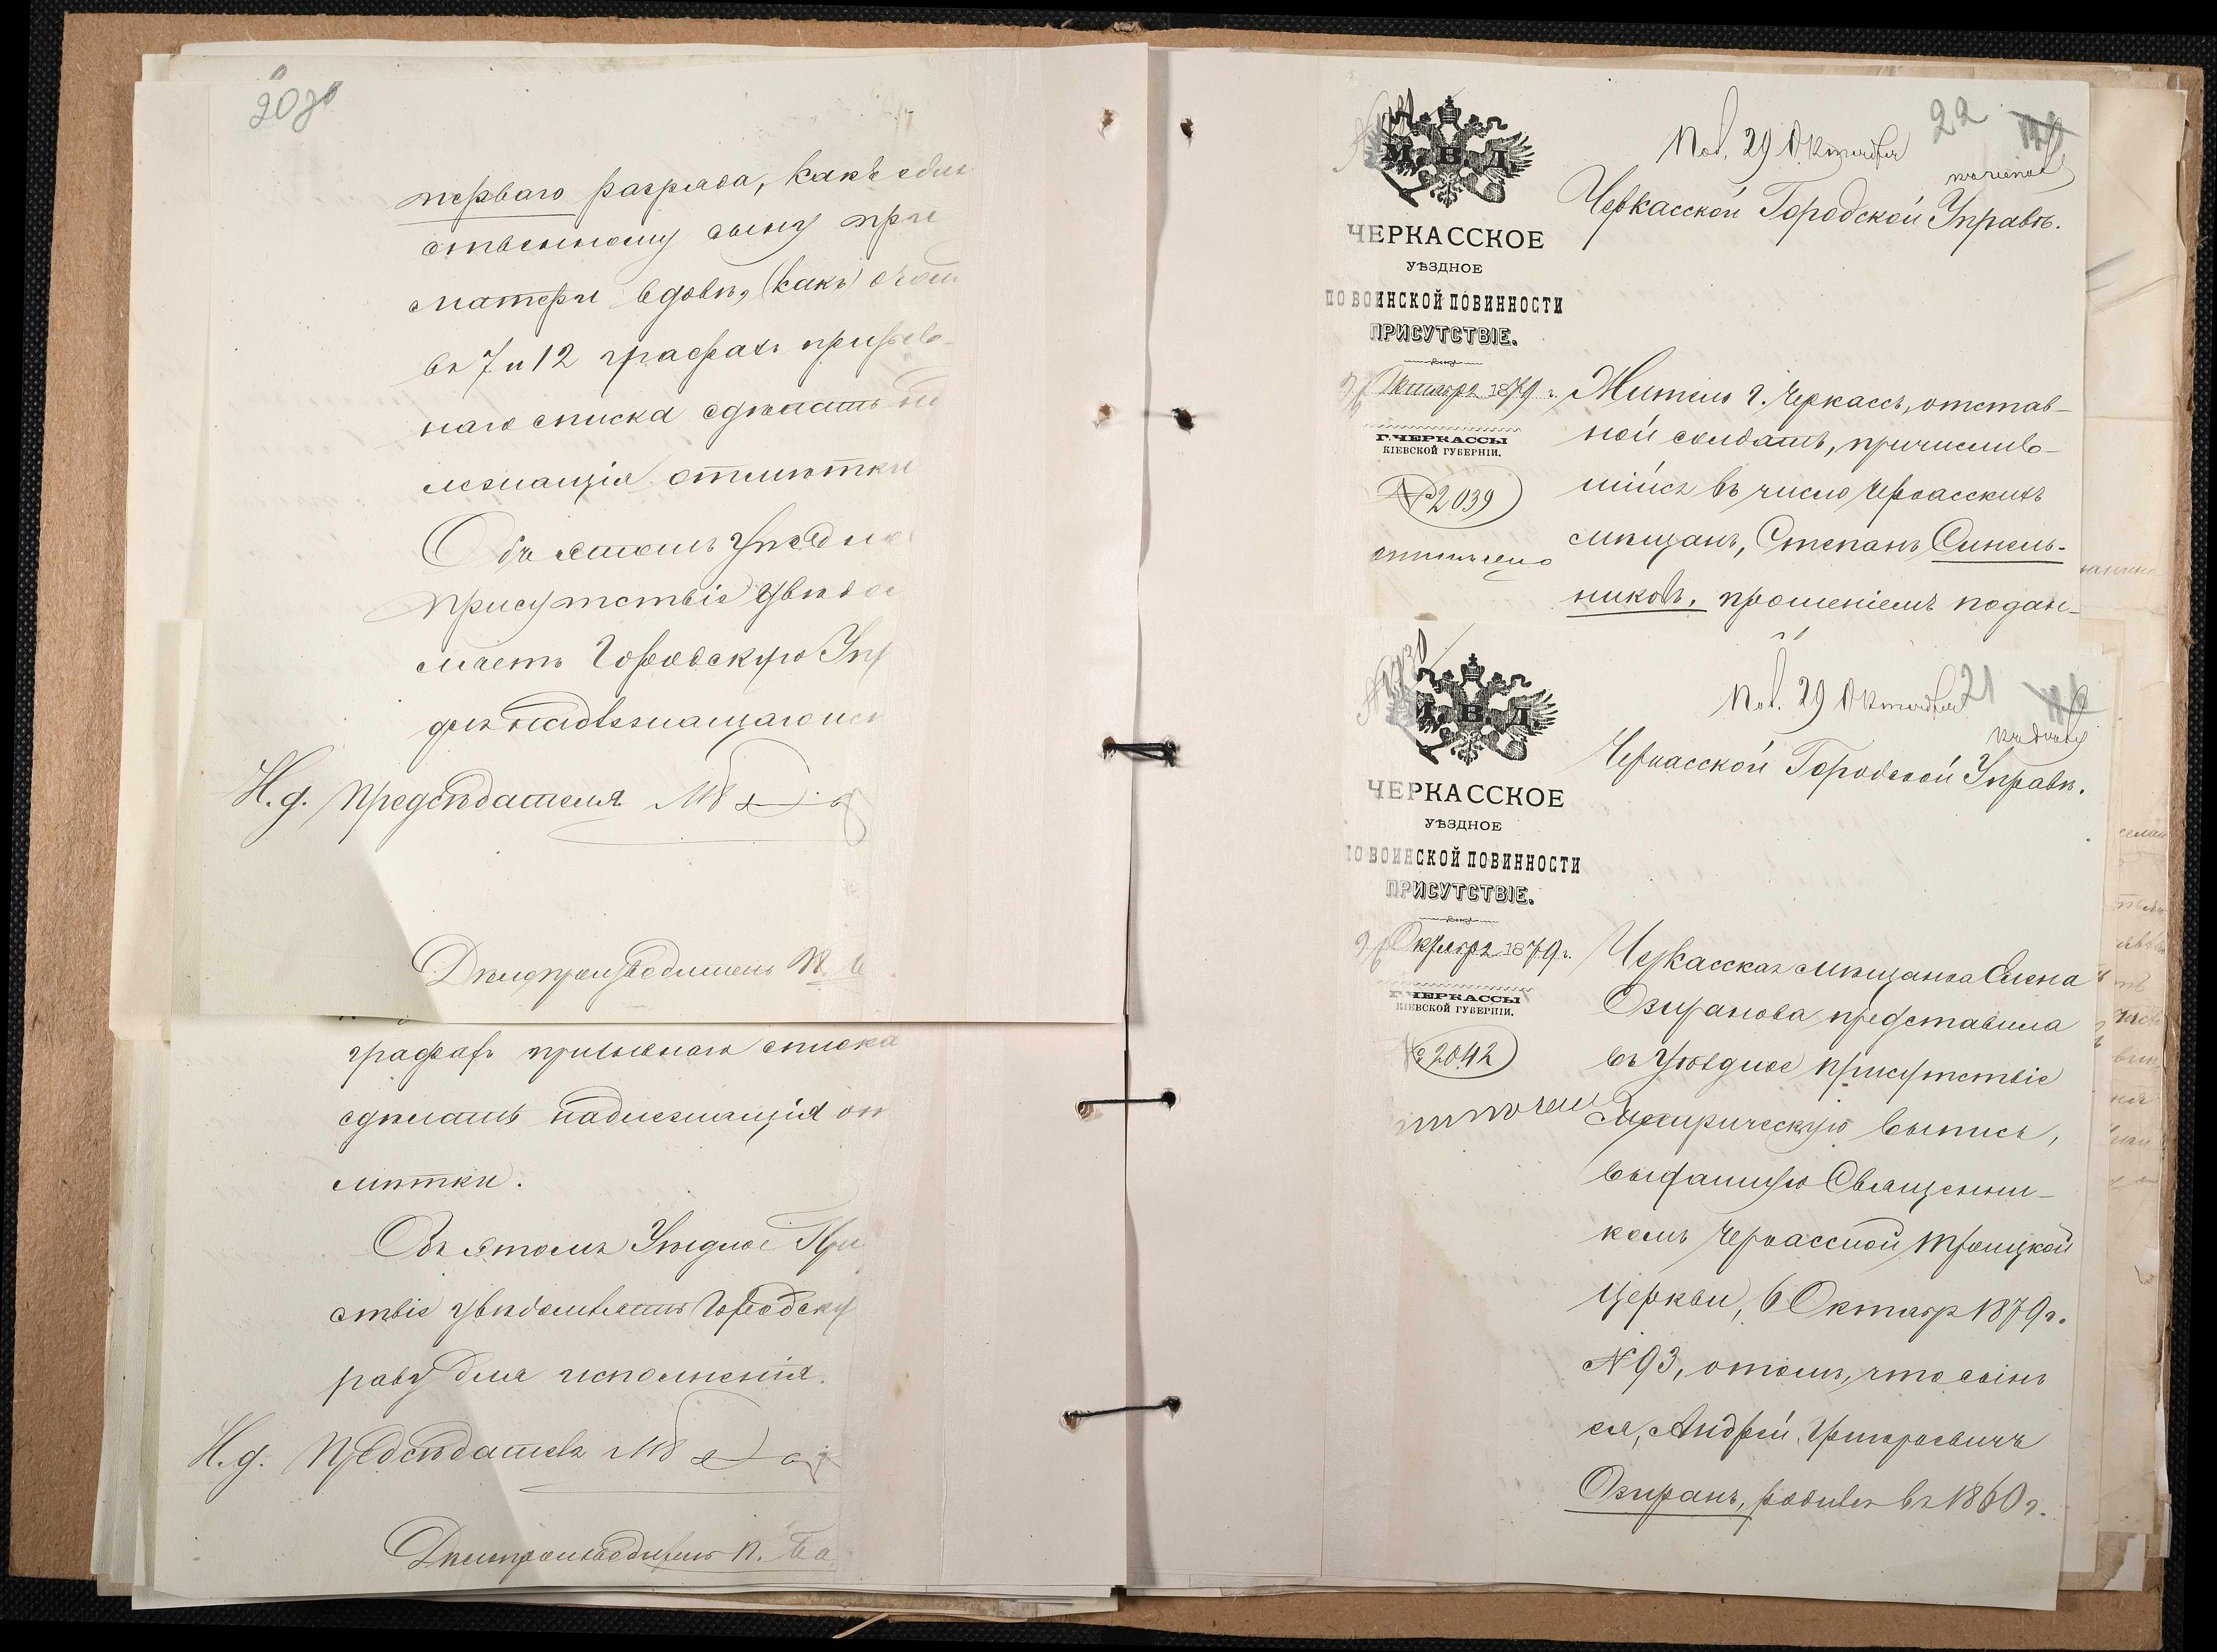 20 об
перваго разряда, какъ един
ственному сыну при
матери вдовѣ, (какъ)
въ 7 и 12 графахъ призыв-
наго списка сдѣлать на
лежащія отмѣтки
Объ этомъ Уѣздно
Присутствіе увѣдо
мляетъ Городскую Упр
для надлежащаго исп
И. д. Предсѣдателя
Дѣлопроизводитель П.
графахъ призывнаго списка
сдѣлать надлежащія от
мѣтки.
Объ этомъ Уѣздное При
ствіе увѣдомляетъ Городску
раву для исполненія.
И. д. Предсѣдателя
Дѣлопроизводитель П. Ба
22
Пол. 29 Октября
Черкасской Городской Управѣ.
М. В. Д.
ЧЕРКАССКОЕ
УѢЗДНОЕ
ПО ВОИНСКОЙ ПОВИННОСТИ
ПРИСУТСТВІЕ.
Октября 1879 г.
Г. ЧЕРКАССЫ
КІЕВСКОЙ ГУБЕРНІИ.
№ 2039
отмѣчено
Житель г. Черкассъ, отстав-
ной солдатъ, причислив-
шійся въ число Черкасскихъ
мѣщанъ, Степанъ Синель-
никовъ, прошеніемъ подан-
21
Пол. 29 Октября
Черкасской Городской Управѣ.
М. В. Д.
ЧЕРКАССКОЕ
УѢЗДНОЕ
ПО ВОИНСКОЙ ПОВИННОСТИ
ПРИСУТСТВІЕ.
Октября 1879 г.
Г. ЧЕРКАССЫ
КІЕВСКОЙ ГУБЕРНІИ.
№ 2042
Черкасская мѣщанка Елена
Озиранова представила
въ Уѣздное Присутствіе
Метрическую выпись,
выданную Священни-
комъ Черкасской Троицкой
Церкви, 6 Октября 1879 г.
№ 93, о томъ, что сынъ
ея, Андрей Григорьевичъ
Озиранъ, родился въ 1860 г.